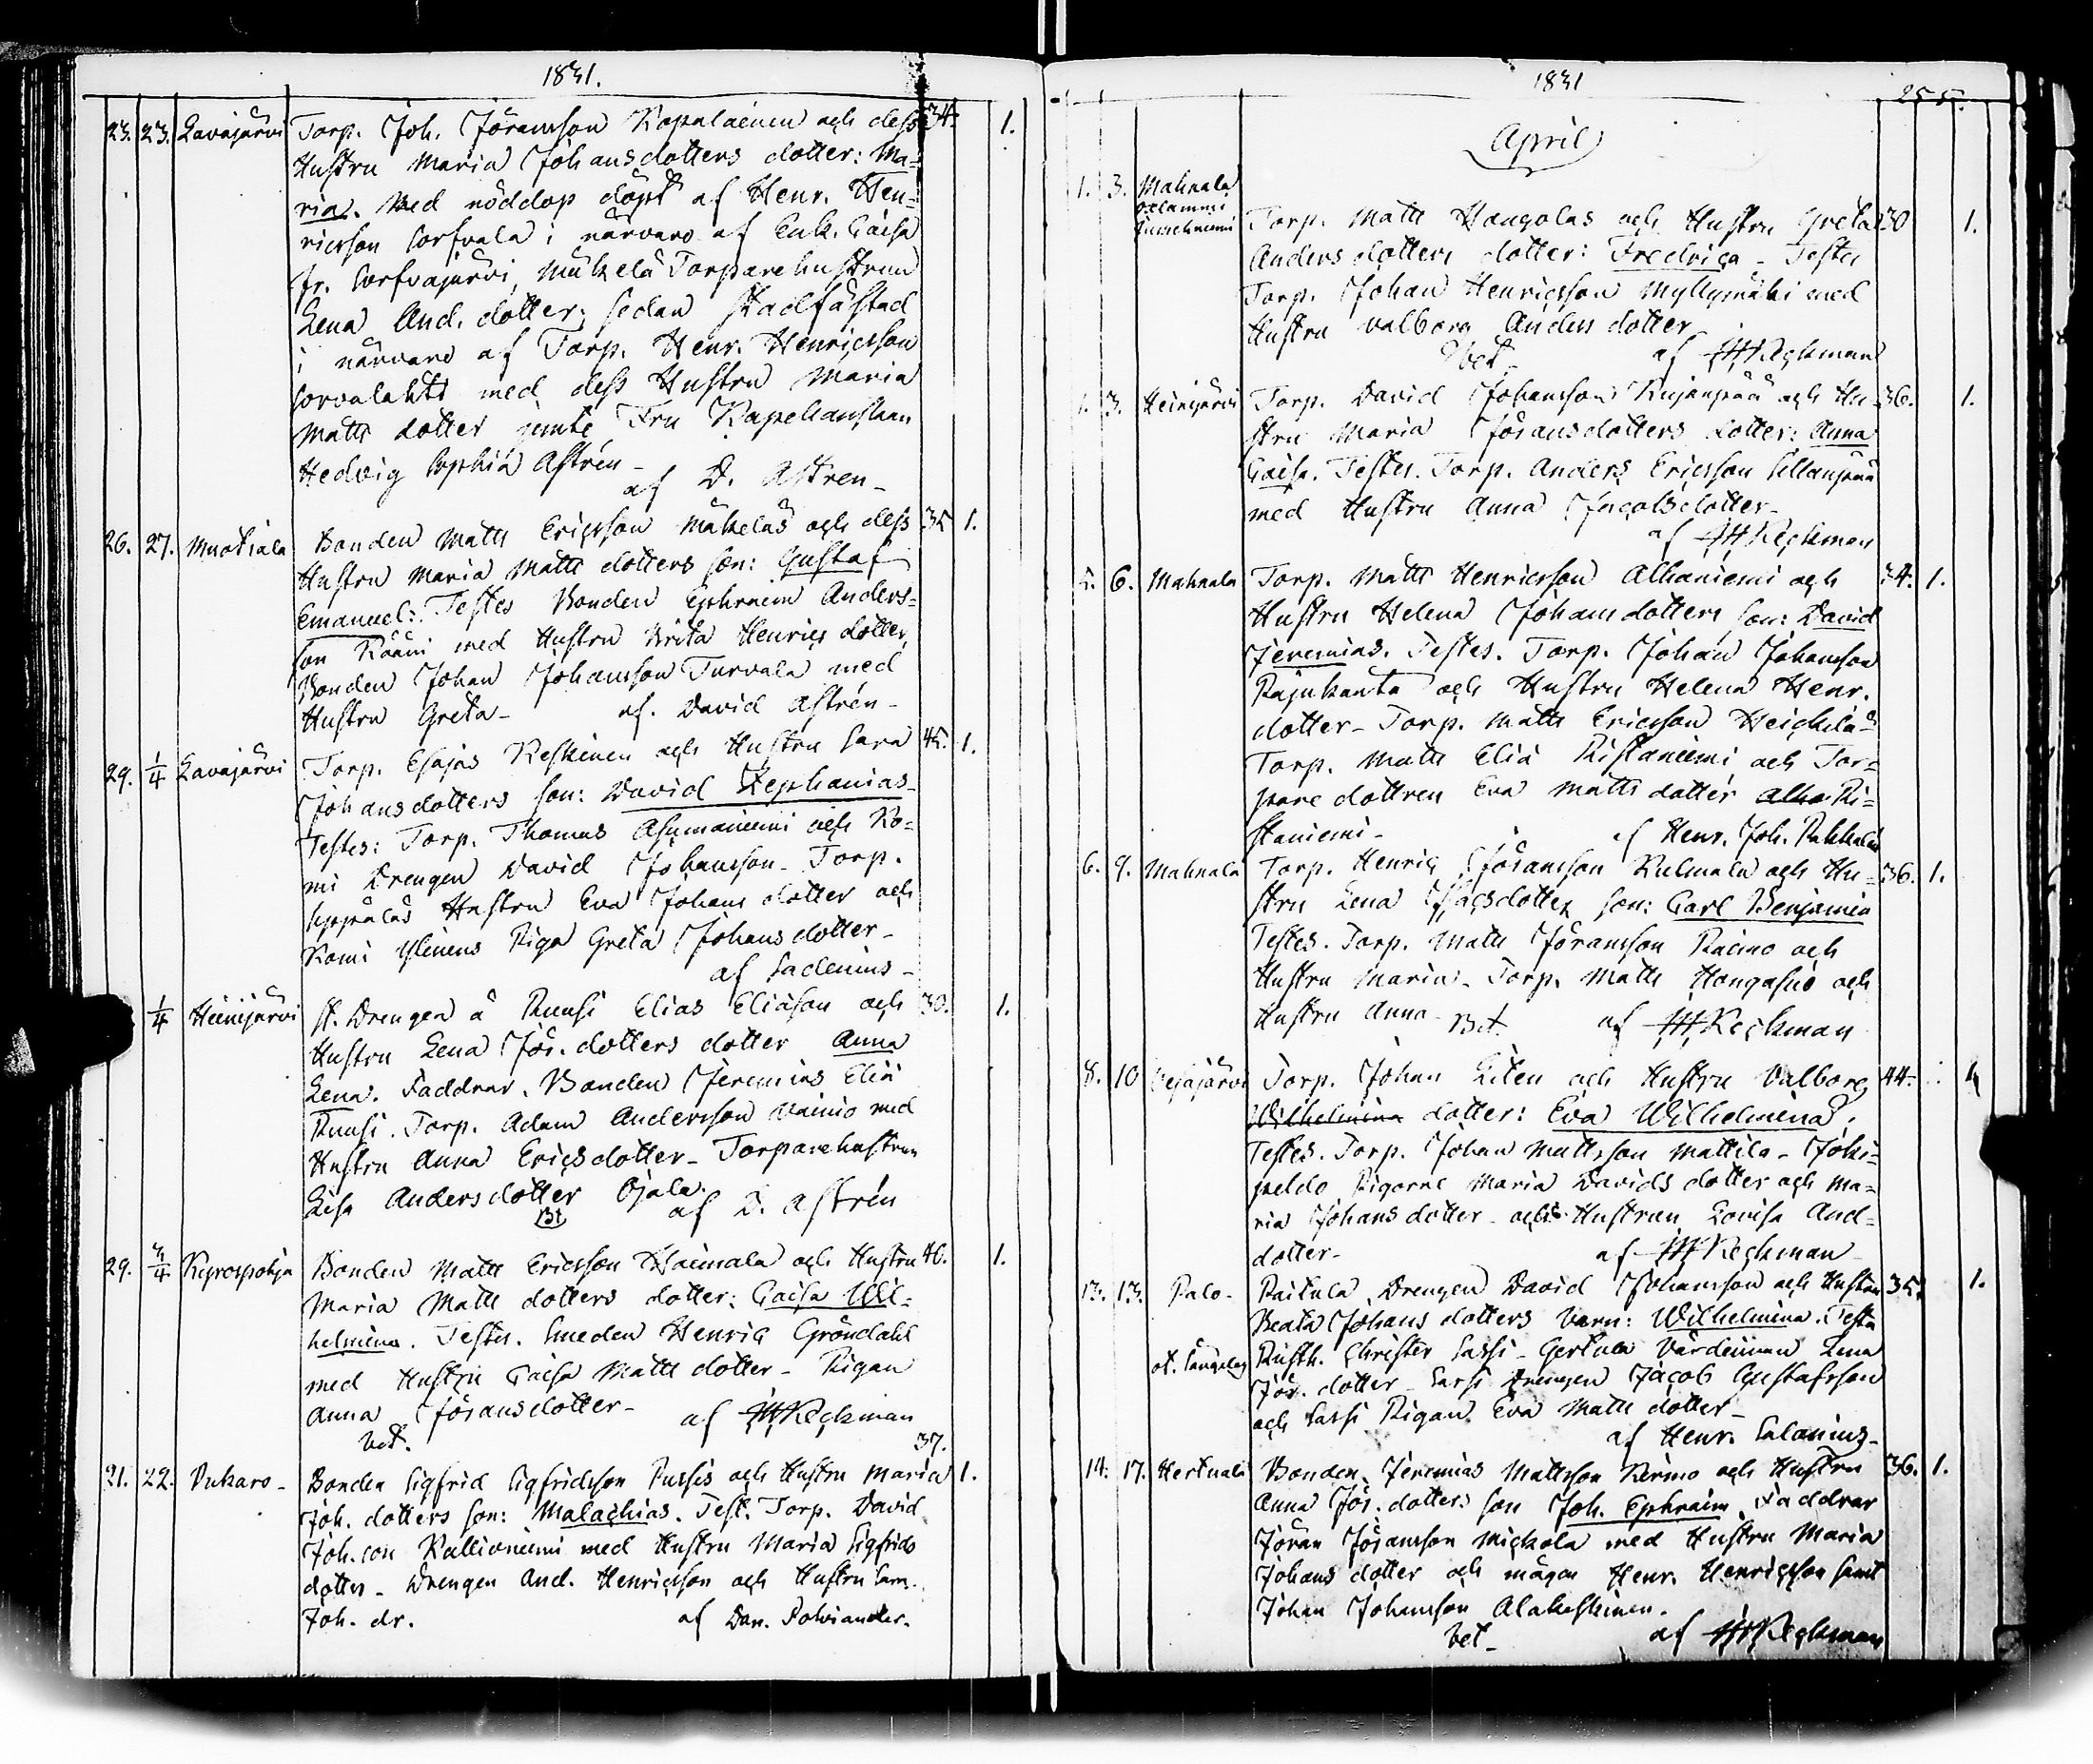 1831.
23. 23. Lavajärvi Torp. Joh. Göransson Kopalainen och dess 34. 1.
Hustru Maria Johansdotters dotter: Ma-
ria. Med nöddop döpt af Henr. Hen-
ricsson Sorfvala i närvaro af Enk. Caisa
fr. Sorfvajärvi, Mäkelä Torparehustrun
Lena And. dotter; sedan stadfästad
i närvaro af Torp. Henr. Henricsson
Sorvalahti med dess Hustru Maria
Matts dotter jemte Fru Kapellanskan
Hedvig Sophia Astrén -
af D. Astren -
26. 27. Muotiala Bonden Matts Ericsson Mäkeläs och dess 35 1.
Hustru Maria Matts dotters son: Gustaf
Emanuel: Testes Bonden Ephraim Anders-
son Rääni med Hustru Brita Henrics dotter,
Bonden Johan Johansson Turvala med
Hustru Greta - af. David Astrén -
29. 1/4 Lavajärvi Torp. Esajas Keskinen och Hustru Sara 45. 1.
Johansdotters son: David Zephanias -
Testes: Torp. Thomas Asumaniemi och Ko-
mi Drengen David Johansson - Torp.
Seppäläs Hustru Eva Johans dotter och
Komi Ylinens Piga Greta Johansdotter -
af Sadenius -
1/4 Heinijärvi st. Drengen å Ruusi Elias Eliasson och 30. 1.
Hustru Lena Gör. dotters dotter Anna
Lena. Faddrar. Bonden Jeremias Eliä
Ruusi. Torp. Adam Andersson Vainio med
Hustru Anna Ericsdotter - Torparehustrun
Lisa Andersdotter Ojala.
Bt af D. Astrén
29. 3/4 Kyrospohja Bonden Matts Ericsson Haimala och Hustru 40. 1.
Maria Matts dotters dotter: Caisa Wil-
helmina. Testes. Smeden Henric Gröndahl
med Hustru Caisa Matts dotter - Pigan
Anna Göransdotter - af HReckman
bet.
37.
21. 22. Vukaro - Bonden Sigfrid Sigfridsson Pussis och Hustru Maria 1.
Joh. dotters son: Malachias. Test. Torp. David
Joh. son Kallioniemi med Hustru Maria Sigfrids
dotter - Drengen And. Henricsson och Hustru Sara
Joh. dr. af Dan. Polviander.
1831 255.
April
1. 3. Mahnala
Torp. Matts Hangolas och Hustru Greta 30 1.
Anders dotters dotter: Fredrica - Testes
Torp. Johan Henricsson Myllymäki med
Hustru Valborg Anders dotter
bet. af HReckman
1. 3. Heinijärvi Torp. David Johansson Kujanpää och Hu- 36. 1.
stru Maria Göransdotters dotter: Anna
Caisa. Testes. Torp. Anders Ericsson Sillanpää
med Hustru Anna Jacobsdotter -
af HReckman
5. 6. Mahnala Torp. Matts Henricsson Alhaniemi och 34. 1.
Hustru Helena Johansdotters son: David
Jeremias. Testes. Torp. Johan Johansson
Rajukanta och Hustru Helena Henr.
dotter - Torp. Matts Ericsson Heickilä -
Torp. Matts Eliä Ristaniemi och Tor-
pare dottren Eva Matts dotter Alha Ri-
staniemi - af Henr. Joh. Pakkala
6. 9. Mahnala Torp. Henric Göransson Kulmala och Hu- 36. 1.
stru Lena Isacsdotter son: Carl Benjamin
Testes. Torp. Matts Göransson Raimo och
Hustru Maria. Torp. Matts Hongasuo och
Hustru Anna - Bet. af HReckman
8. 10 Torp. Johan Liten och Hustru Valborg 44. 1
Wilhelmina dotter: Eva Wilhelmina.
Testes. Torp. Johan Mattsson Mattila - Joki-
peldo Pigorne Maria Davids dotter och Ma-
ria Johans dotter - och Hustrun Lovisa And-
dotter - af HReckman
13. 13. Palo - Paitula Drengen David Johansson och Hustru 35. 1.
Beata Johans dotters barn: Wilhelmina. Testes
Rusth. Christer Sassi - Gertula Värdinnan Lena
Gör. dotter - Sassi Drengen Jacob Gustafsson
och Sassi Pigan Eva Matts dotter -
af Henr. Salonius -
14. 17. Hertuala Bonden Jeremias Mattsson Kermo och Hustru 36. 1.
Anna Gör. dotters son Joh. Ephraim Faddrar
Göran Göransson Mickola med Hustru Maria
Johans dotter och mågen Henr. Henricsson samt
Johan Johansson Alakeskinen.
bet - af HReckman